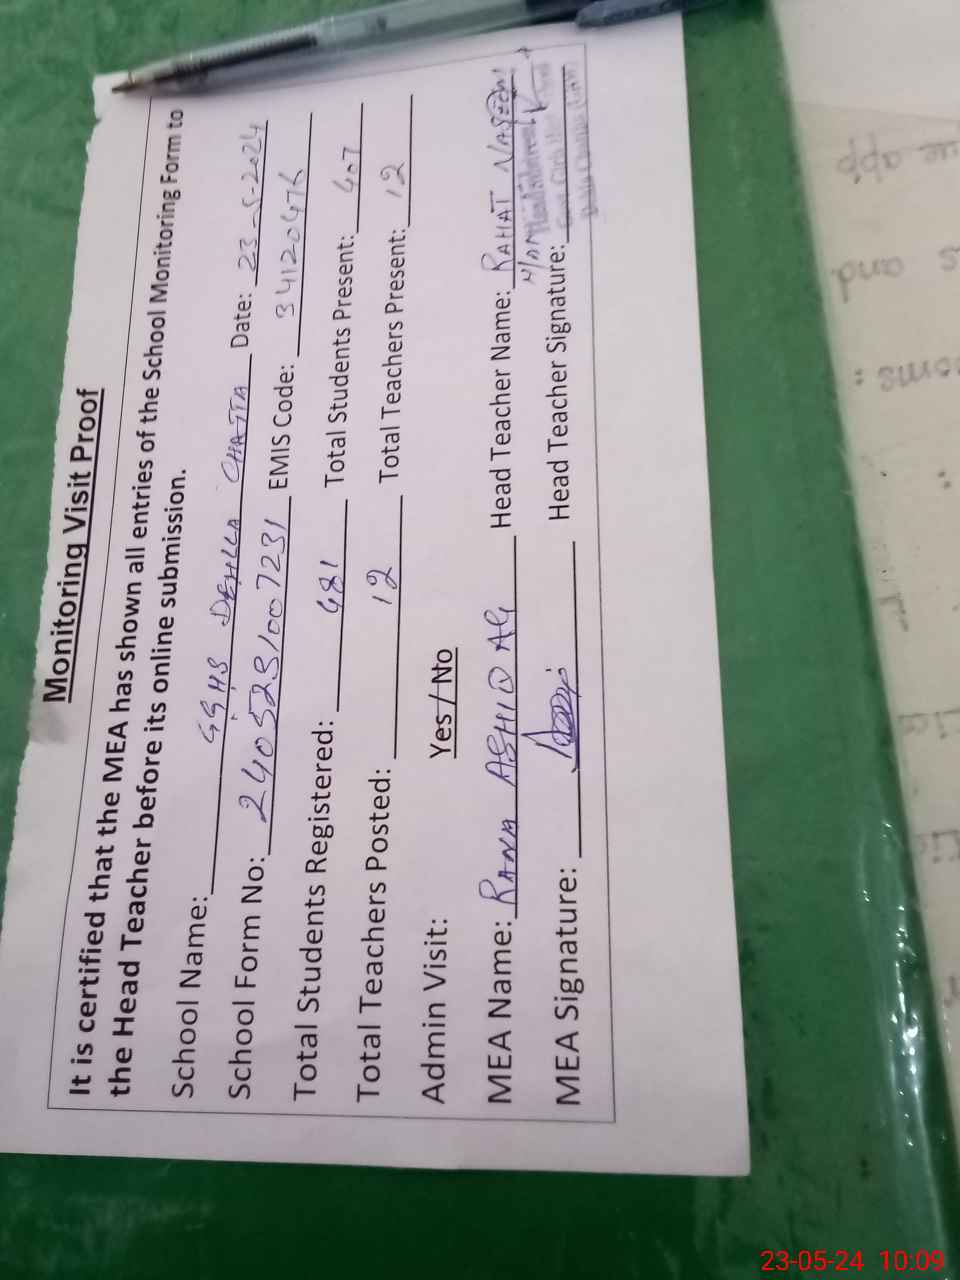 Monitoring Visit Proof
It is certified that the MEA has shown all entries of the School Monitoring Form to
the Head Teacher before its online submission.
School Name: GGHS DEHLLA CHATTA Date: 23-5-2024
School Form No: 2405231007231 EMIS Code: 34120476
Total Students Registered: 481 Total Students Present: 407
Total Teachers Posted: 12 Total Teachers Present: 12
Admin Visit: Yes / No
MEA Name: RANA ASHIQ ALI Head Teacher Name: RAHAT NASEEM
MEA Signature: Head Teacher Signature:
app
and
23-05-24 10:09